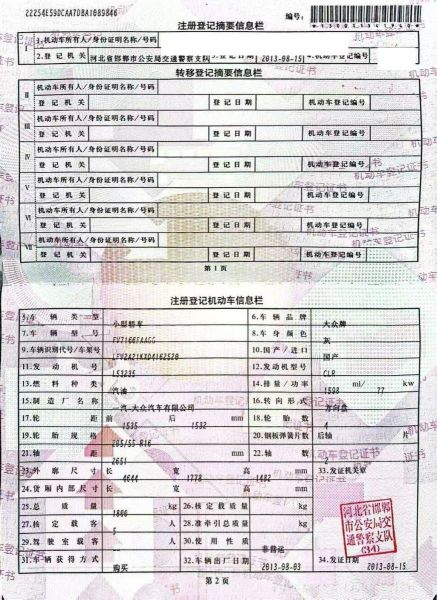 22254E59DCAA7DBA1689846
编号:
注册登记摘要信息栏
Ⅰ 1.机动车所有人/身份证明名称/号码
2.登记机关 河北省邯郸市公安局交通警察支队 3.登记日期 2013-08-15 4.机动车登记编号
转移登记摘要信息栏
Ⅱ 机动车所有人/身份证明名称/号码
登记机关 登记日期 机动车登记编号
Ⅲ 机动车所有人/身份证明名称/号码
登记机关 登记日期 机动车登记编号
Ⅳ 机动车所有人/身份证明名称/号码
登记机关 登记日期 机动车登记编号
Ⅴ 机动车所有人/身份证明名称/号码
登记机关 登记日期 机动车登记编号
Ⅵ 机动车所有人/身份证明名称/号码
登记机关 登记日期 机动车登记编号
Ⅶ 机动车所有人/身份证明名称/号码
登记机关 登记日期 机动车登记编号
第1页
注册登记机动车信息栏
5.车辆类型 小型轿车 6.车辆品牌 大众牌
7.车辆型号 FV7166FAAGG 8.车身颜色 灰
9.车辆识别代号/车架号 10.国产/进口 国产
11.发动机号 L53235 12.发动机型号 CLR
13.燃料种类 汽油 14.排量/功率 1598 ml/ 77 kw
15.制造厂名称 一汽-大众汽车有限公司 16.转向形式 方向盘
17.轮距 前 1535 后 1532 mm 18.轮胎数 4
19.轮胎规格 205/55 R16 20.钢板弹簧片数 后轴 片
21.轴距 2651 mm 22.轴数 2
23.外廓尺寸 长 4644 宽 1778 高 1482 mm 33.发证机关章
24.货厢内部尺寸 长 宽 高 mm
25.总质量 1800 kg 26.核定载质量 kg
27.核定载客 5 人 28.准牵引总质量 kg
29.驾驶室载客 人 30.使用性质 非营运
31.车辆获得方式 购买 32.车辆出厂日期 2013-08-03 34.发证日期 2013-08-15
河北省邯郸
市公安局交
通警察支队
(34)
第2页